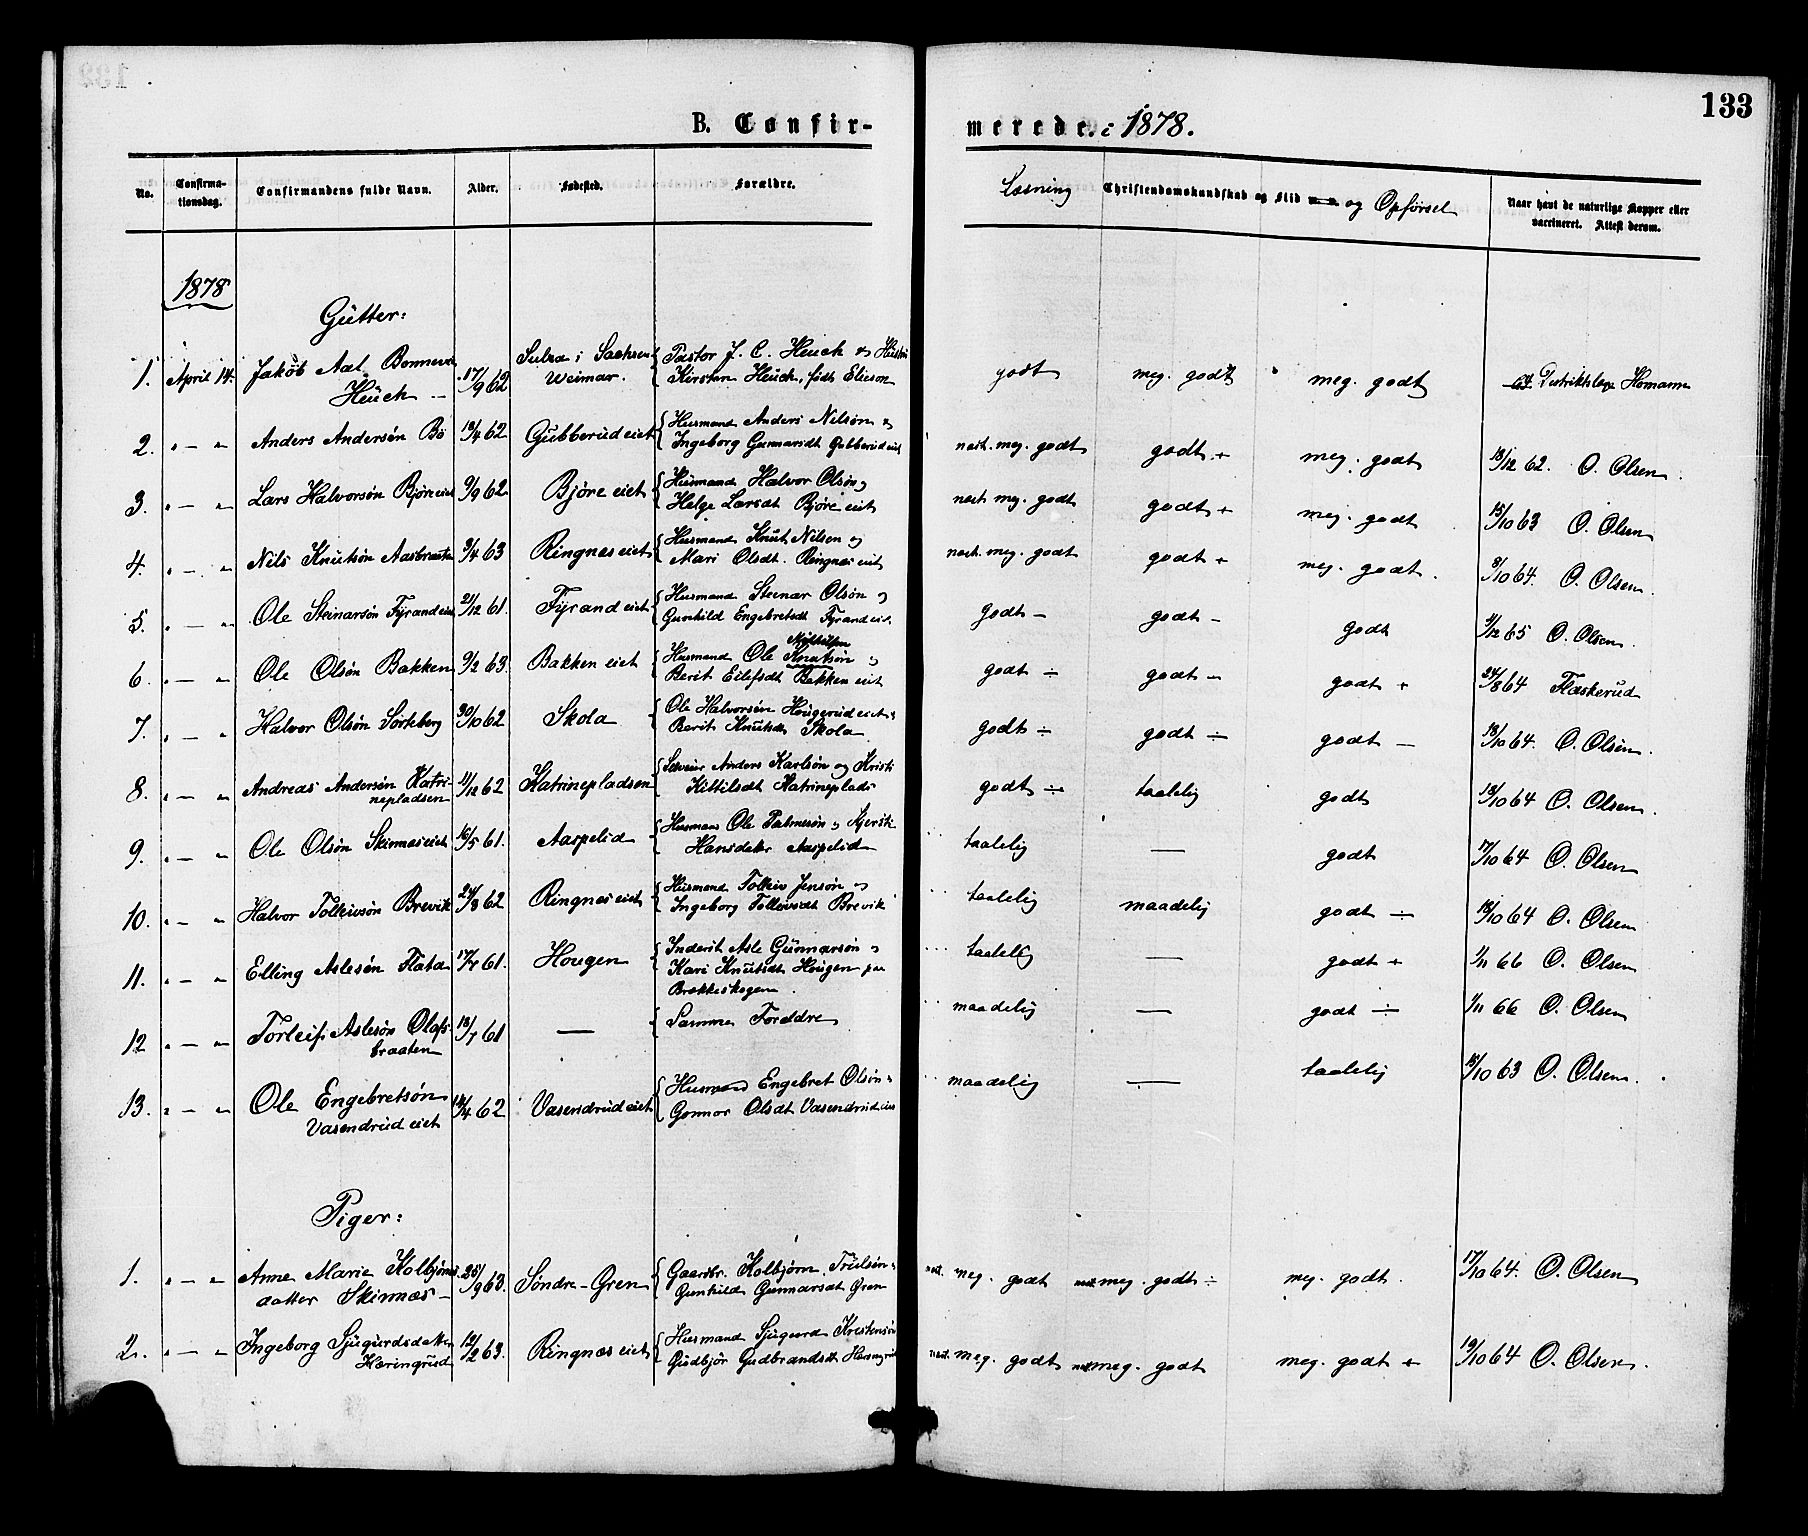 133
B. Confir- merede. i 1878.
No. Confirma-tionsdag. Confirmandens fulde Navn. Alder. Fødested. Forældre. Læsning Christendomskundskab og Flid og Opførsel Naar havt de naturlige Kopper eller vaccineret. Attest derom.
1878
Gutter:
1. April 14. Jakob Aal Bonnevie Heuch 17/9 62 Sulza i Sachsen Weimar. Pastor J. C. Heuch og Hustru Kirsten Heuch, født Elieson godt meg. godt meg. godt Distriktslæge Homann
2. " — " Anders Andersøn Bö 18/4 62 Gubberud eiet Husmand Anders Nilsøn & Ingeborg Gunnarsdt Gubberud eiet næst. meg. godt godt + meg. godt 18/12 62. O. Olsen.
3. " — " Lars Halvorsøn Björe eiet 9/9 62 Björe eiet Husmand Halvor Olsøn & Helge Larsdt Björe eiet næst. meg. godt godt + meg. godt 15/10 63 O. Olsen
4. " — " Nils Knutsøn Aasbraaten 3/4 63 Ringnes eiet Husmand Knut Nilsen og Mari Olsdt. Ringnes eiet næst. meg. godt godt + meg. godt. 8/10 64. O. Olsen.
5. " — " Ole Steinarsøn Fyrand eiet 21/12 61. Fyrand eiet Husmand Steinar Olsøn & Gunhild Engebretsdt Fyrand eiet. godt — godt — godt 1/12 65 O. Olsen.
6. " — " Ole Olsøn Bakken 9/2 63. Bakken eiet Husmand Ole Knutsøn & Berit Eilefsdt Bakken eiet godt ÷ godt — godt + 24/8 64 Flaskerud
7. " — " Halvor Olsøn Sorteberg 30/10 62 Skola Ole Halvorsøn Hougerud eiet & Berit Knutsdt Skola godt ÷ godt ÷ godt — 18/10 64. O. Olsen.
8. " — " Andreas Andersøn Katrinepladsen 11/12 62 Katrinepladsen Anders Karlsøn og Kristi Kittilsdt Katrineplads godt ÷ taalelig godt 18/10 64 O. Olsen.
9. " — " Ole Olsøn Skinnes eiet 16/5 61. Aaspelid Husmand Ole Palmesøn & Kjersti Hansdatter Aaspelid taalelig — godt 17/10 64 O. Olsen
10. " — " Halvor Tolleivsøn Brevik 24/8 62 Ringnes eiet Husmand Tolleiv Jensøn & Ingeborg Tolleivsdt Brevik taalelig maadelig godt ÷ 18/10 64 O. Olsen
11. " — " Elling Aslesøn Flata 17/7 61. Hougen Inderst Asle Gunnarsøn & Kari Knutsdt Hougen paa Brækkeskogen. taalelig — godt + 1/11 66 O. Olsen
12 " — " Torleif Aslesøn Olafsbraaten 18/7 61 — Samme Forældre maadelig — godt ÷ 1/11 66 O. Olsen
13. " — " Ole Engebretsøn Vasendrud eiet 14/4 62 Vasendrud eiet Husmand Engebret Olsøn & Gonnor Olsdt Vasendrud eiet maadelig — taalelig 15/10 63 O. Olsen.
Piger:
1. " — " Anne Marie Kolbjönsdatter Skinnes 25/9 63. Söndre-Gren Gaardbr. Kolbjørn Trulsøn & Gunhild Gunnarsdt Gren næst. meg. godt næst meg. godt ÷ meg. godt. 17/10 64. O. Olsen
2. " — " Ingeborg Sjugurdsdatter Haringrud 12/2 63. Ringnes eiet Husmand Sjugurd Kristensøn Gudbjör Gudbrandsdt næst. meg. godt næst meg. godt meg. godt + 19/10 64 O. Olsen.